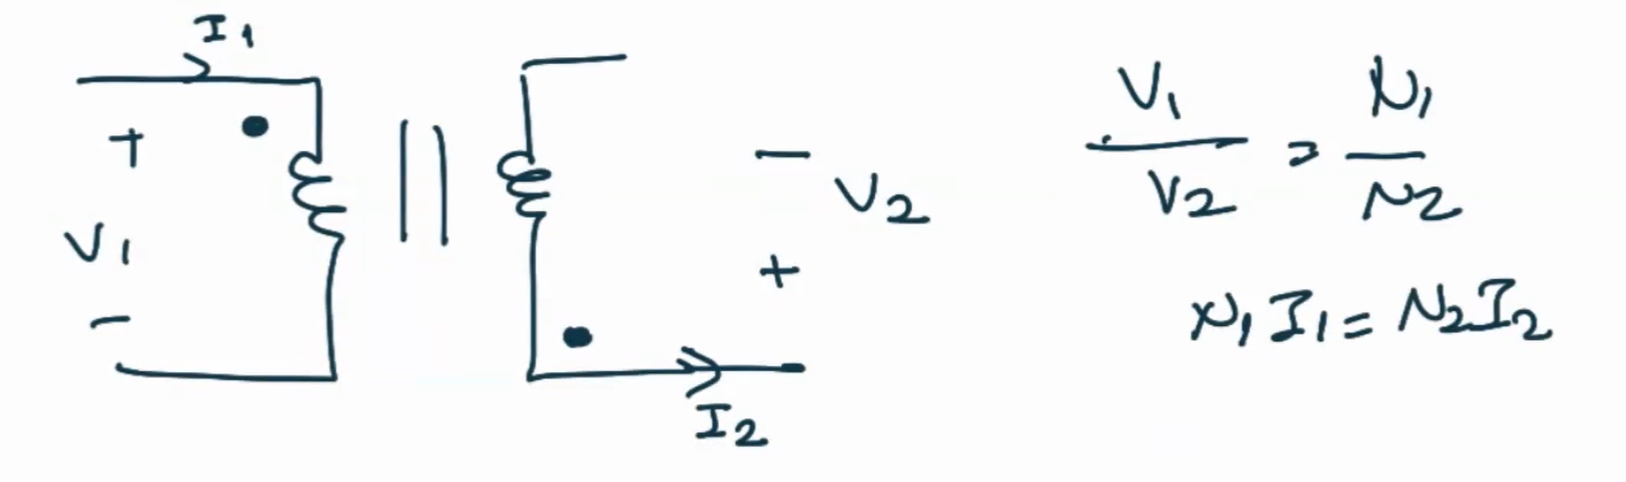 I₁
+
V₁
−
−
V₂
+
I₂
V₁/V₂ = N₁/N₂
N₁I₁ = N₂I₂